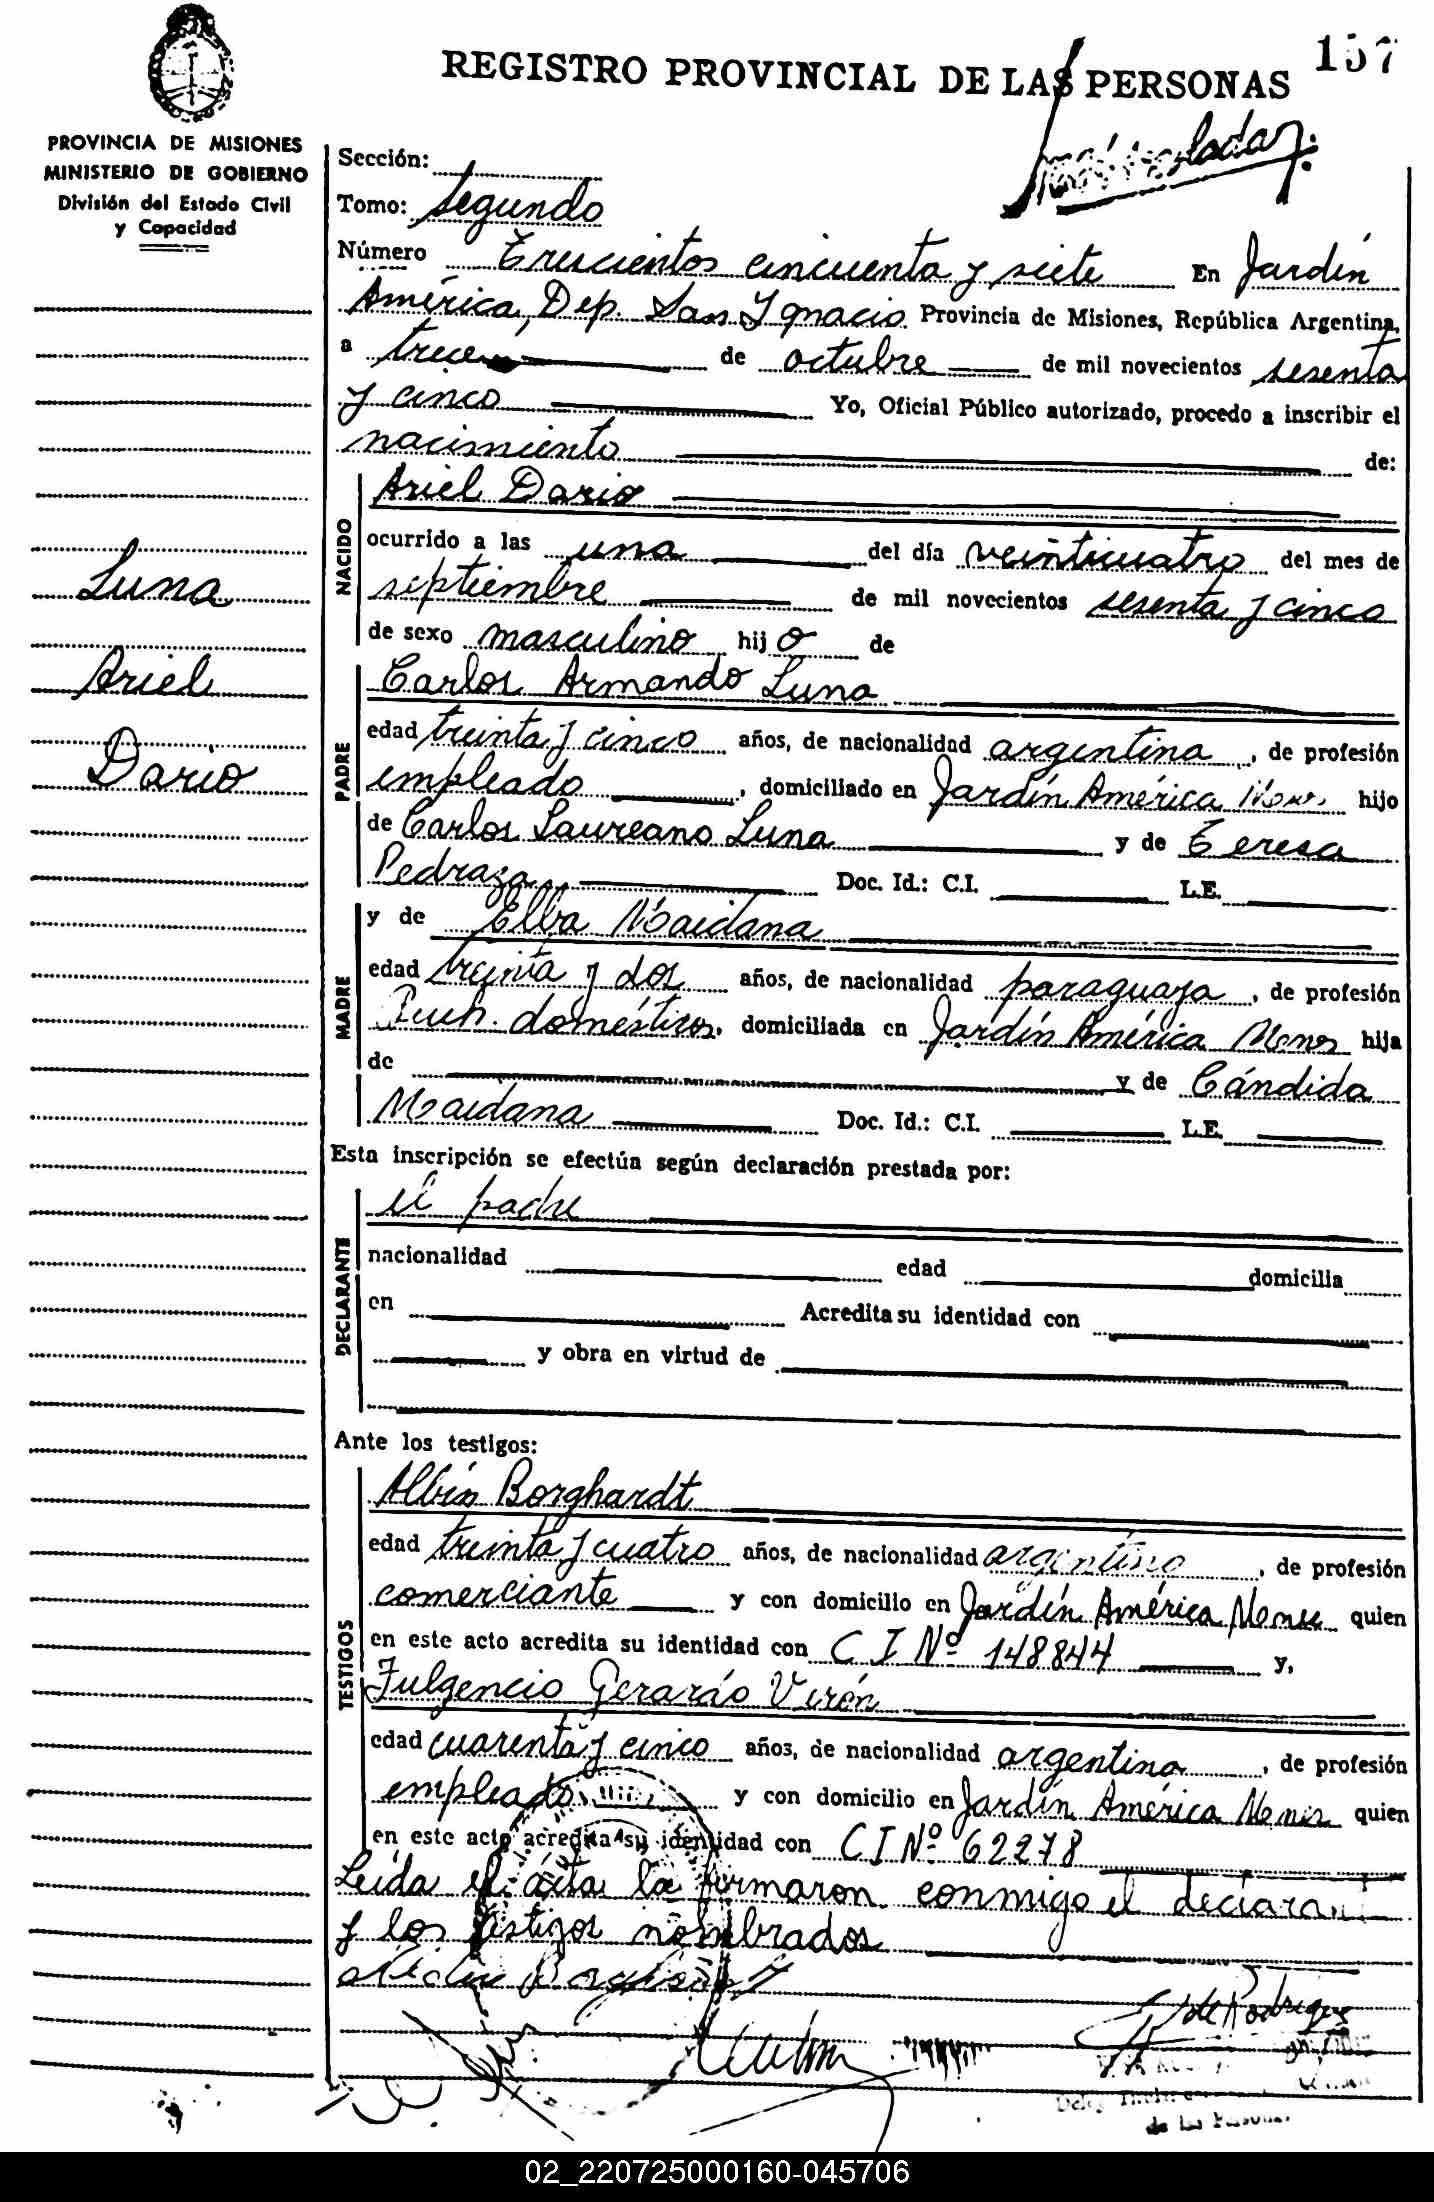 157
REGISTRO PROVINCIAL DE LAS PERSONAS
PROVINCIA DE MISIONES
MINISTERIO DE GOBIERNO
División del Estado Civil
y Capacidad
Sección:
Tomo: Segundo
Número Trescientos cincuenta y siete En Jardín
América, Dep. San Ignacio Provincia de Misiones, República Argentina,
a trece de octubre de mil novecientos sesenta
y cinco Yo, Oficial Público autorizado, procedo a inscribir el
nacimiento de:
NACIDO
Ariel Dario
ocurrido a las una del día veinticuatro del mes de
septiembre de mil novecientos sesenta y cinco
de sexo masculino hijo de
Luna
Ariel
Dario
PADRE
Carlos Armando Luna
edad treinta y cinco años, de nacionalidad argentina, de profesión
empleado, domiciliado en Jardín América hijo
de Carlos Laureano Luna y de Teresa
Pedraza Doc. Id.: C.I. L.E.
MADRE
y de Elba Maidana
edad treinta y dos años, de nacionalidad paraguaya, de profesión
domésticos, domiciliada en Jardín América Mones hija
de y de Cándida
Maidana Doc. Id.: C.I. L.E.
Esta inscripción se efectúa según declaración prestada por:
DECLARANTE
el padre
nacionalidad edad domicilia
en Acredita su identidad con
y obra en virtud de
Ante los testigos:
TESTIGOS
Albin Borghardt
edad treinta y cuatro años, de nacionalidad argentino, de profesión
comerciante y con domicilio en Jardín América quien
en este acto acredita su identidad con C I Nº 148844 y,
Fulgencio Gerardo Virón
edad cuarenta y cinco años, de nacionalidad argentina, de profesión
empleado y con domicilio en Jardín América Mones quien
en este acto acredita su identidad con C I Nº 62278
Leída el acta la firmaron conmigo el declarant
y los testigos nombrados
de las Personas
02_220725000160-045706